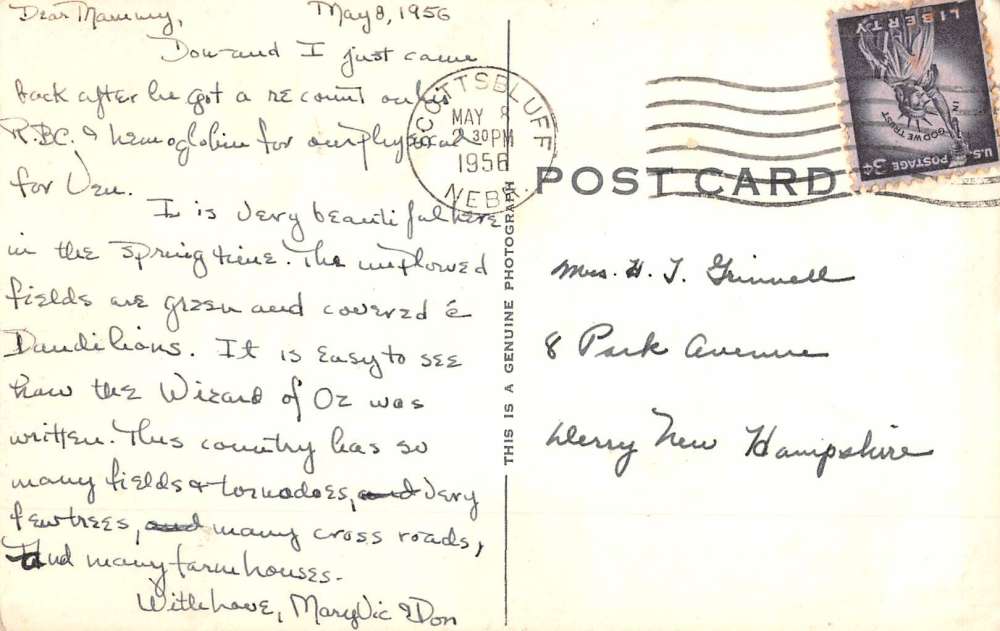 Dear Mammy, May 8, 1956
Don and I just came
back after he got a recount on his
R.B.C. & hemoglobin for our physical
for Uzn.
It is very beautiful here
in the springtime. The unplowed
fields are green and covered c̄
Dandilions. It is easy to see
how the Wizard of Oz was
written. This country has so
many fields & tornadoes, and very
few trees, and many cross roads,
and many farmhouses.
With love, MaryVic & Don
SCOTTSBLUFF
MAY 8
2 30 PM
1956
NEBR.
THIS IS A GENUINE PHOTOGRAPH
LIBERTY
IN GOD WE TRUST
U.S. POSTAGE 3¢
POST CARD
Mrs. H. J. Grinnell
8 Park Avenue
Derry New Hampshire